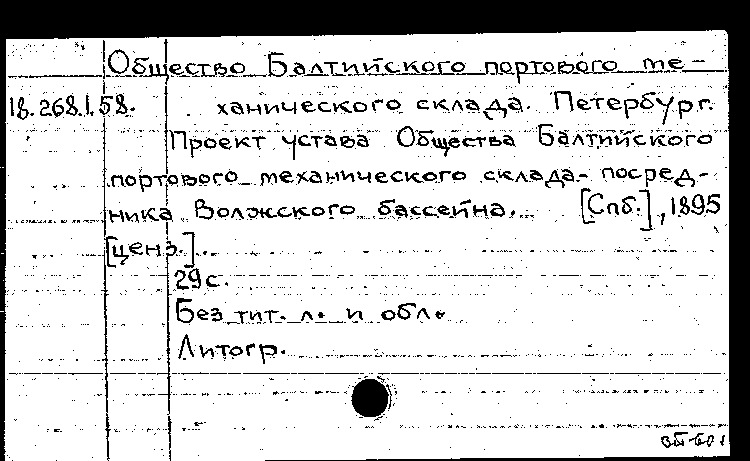 Общество Балтийского портового ме-
18.268.1.58. ханического склада. Петербург.
Проект устава Общества Балтийского
портового механического склада-посред-
ника Волжского бассейна. [Спб.], 1895
[ценз.].
29с.
Без тит. л. и обл.
Литогр.